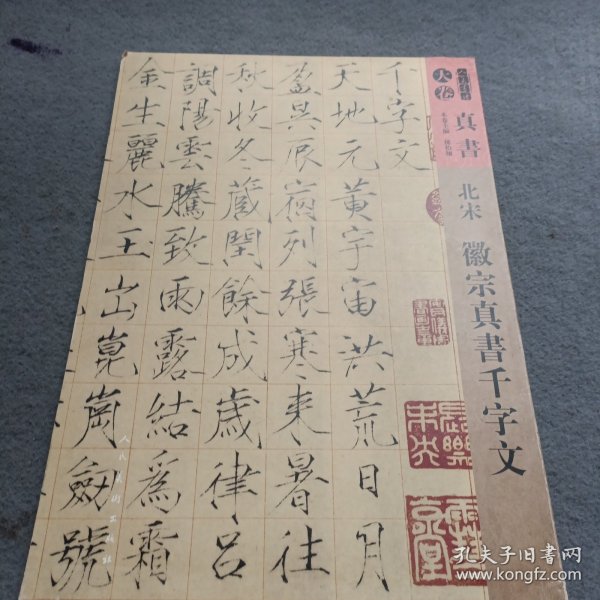 大卷
真書
北宋 徽宗真書千字文
千字文
天地元黄宇宙洪荒日月
盈昃辰宿列張寒来暑往
秋收冬蔵閏餘成歳律呂
調陽雲騰致雨露結為霜
金生麗水玉出崑崗劒號
人民美術出版社
孔夫子旧书网
www.kongfz.com